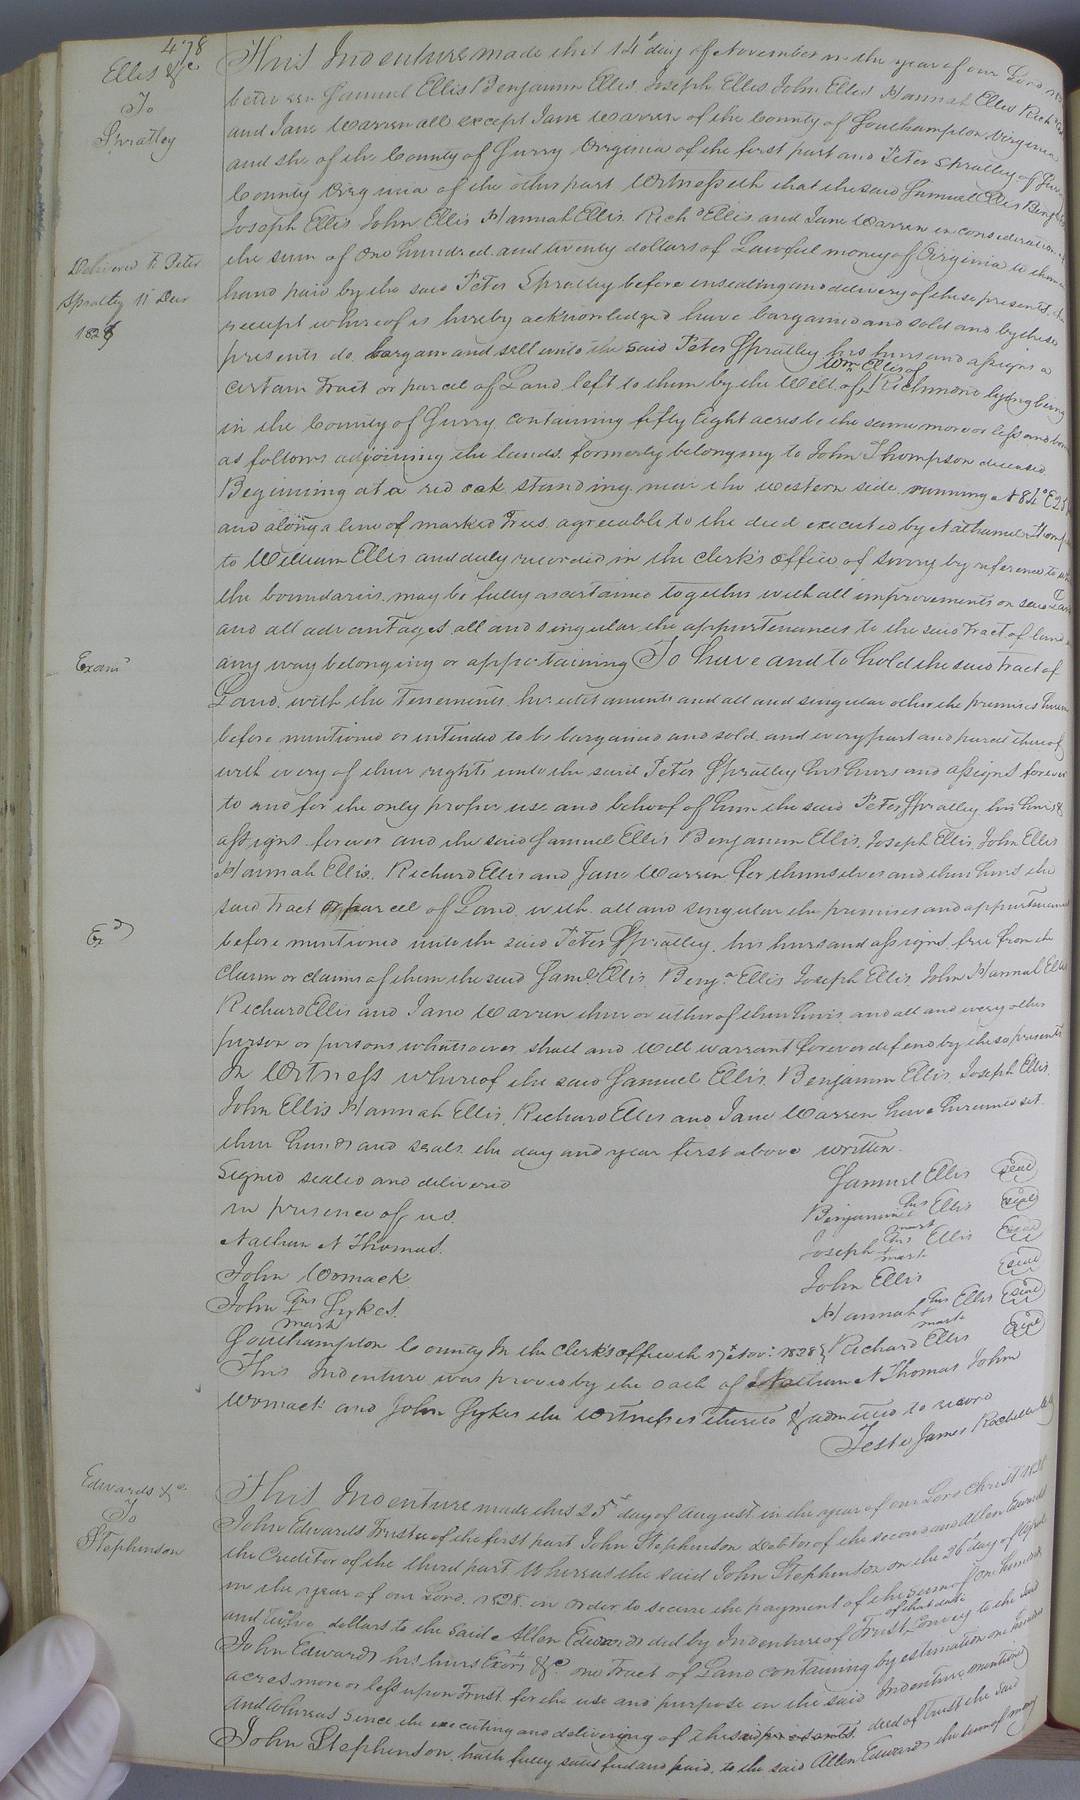 478
Ellis &c
To
Spratley
This Indenture made this 14th day of November in the year of our Lord
between Samuel Ellis Benjamin Ellis Joseph Ellis John Ellis Hannah Ellis Richd
and Jane Warren all except Jane Warren of the County of Southampton Virginia
and she of the County of Surry Virginia of the first part and Peter Spratley of
County Virginia of the other part Witnesseth that the said Samuel Ellis
Joseph Ellis John Ellis Hannah Ellis Richd Ellis and Jane Warren in consideration
the sum of one hundred and twenty dollars of Lawful money of Virginia to them in
Delivered to Peter
Spratley 11 Decr
1828
hand paid by the said Peter Spratley before ensealing and delivery of these presents
receipt whereof is hereby acknowledged have bargained and sold and by these
presents do bargain and sell unto the said Peter Spratley his heirs and assigns a
certain Tract or parcel of Land left to them by the Will of Wm Ellis of Richmond lying being
in the County of Surry containing fifty Eight acres be the same more or less and
as follows adjoining the lands formerly belonging to John Thompson deceased
Beginning at a red oak standing near the western side running N 84° E
and along a line of marked Trees agreeable to the deed executed by Nathaniel
to William Ellis and duly recorded in the Clerk's office of Surry by reference to
the boundaries may be fully ascertained together with all improvements on said
and all advantages all and singular the appurtenances to the said Tract of land
Examd
any way belonging or appertaining To have and to hold the said Tract of
Land with the Tenements hereditaments and all and singular other the premises herein
before mentioned or intended to be bargained and sold and every part and parcel thereof
with every of their rights unto the said Peter Spratley his heirs and assigns forever
to and for the only proper use and behoof of him the said Peter Spratley his heirs &
assigns forever and the said Samuel Ellis Benjamin Ellis, Joseph Ellis, John Ellis
Hannah Ellis, Richard Ellis and Jane Warren for themselves and their heirs the
said Tract or parcel of Land with all and singular the premises and appurtenances
Exd
before mentioned unto the said Peter Spratley his heirs and assigns free from the
claim or claims of them the said Saml Ellis, Benja Ellis Joseph Ellis, John Hannah Ellis
Richard Ellis and Jane Warren their or either of their heirs and all and every other
person or persons whatsoever shall and will warrant forever defend by these presents
In Witness whereof the said Samuel Ellis, Benjamin Ellis, Joseph Ellis
John Ellis Hannah Ellis, Richard Ellis and Jane Warren have hereunto set
their hands and seals the day and year first above written.
Signed sealed and delivered
in presence of us
Nathan N Thomas
John Womack
John his + mark Sykes
Samuel Ellis seal
Benjamin his mark Ellis seal
Joseph his + mark Ellis seal
John Ellis seal
Hannah his + mark Ellis seal
Richard Ellis seal
Southampton County In the Clerk's office the 17th Nov: 1828
This Indenture was proved by the oath of Nathan N Thomas John
Womack and John Sykes the witnesses thereto & admitted to record
Teste James Rochelle
Edwards &c
To
Stephenson
This Indenture made this 25th day of August in the year of our Lord Christ 1828
John Edwards Trustee of the first part John Stephenson Debtor of the second and Allen Edwards
the Creditor of the third part Whereas the said John Stephenson on the 26 day of
in the year of our Lord 1828 in order to secure the payment of the sum of one hundred
and twelve dollars to the said Allen Edwards did by Indenture of Trust of that date Convey to the said
John Edwards his heirs Exors &c one Tract of Land containing by estimation one hundred
acres more or less upon Trust for the use and purpose in the said Indenture mentioned
and Whereas since the executing and delivering of the said presents deed of Trust the said
John Stephenson hath fully satisfied and paid to the said Allen Edwards the sum of money